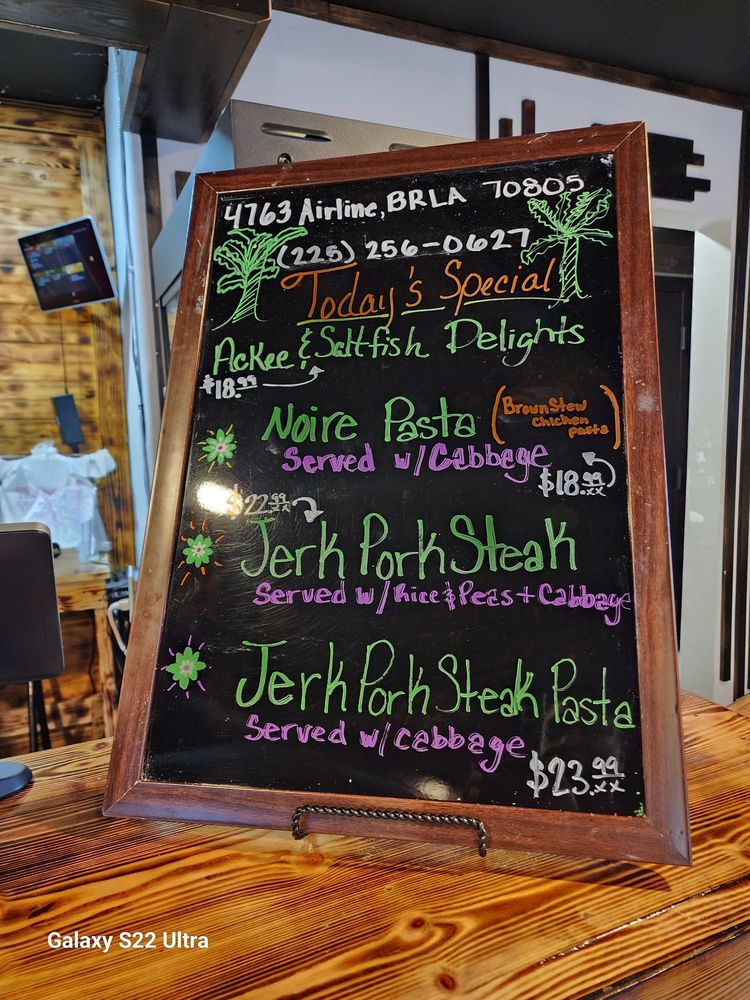 4763 Airline, BRLA 70805
(225) 256-0627
Today's Special
Ackee & Saltfish Delights
$18.99
Noire Pasta (Brown Stew chicken pasta)
Served w/Cabbage
$18.99
$22.99
Jerk Pork Steak
Served w/Rice & Peas + Cabbage
Jerk Pork Steak Pasta
Served w/cabbage
$23.99
Galaxy S22 Ultra